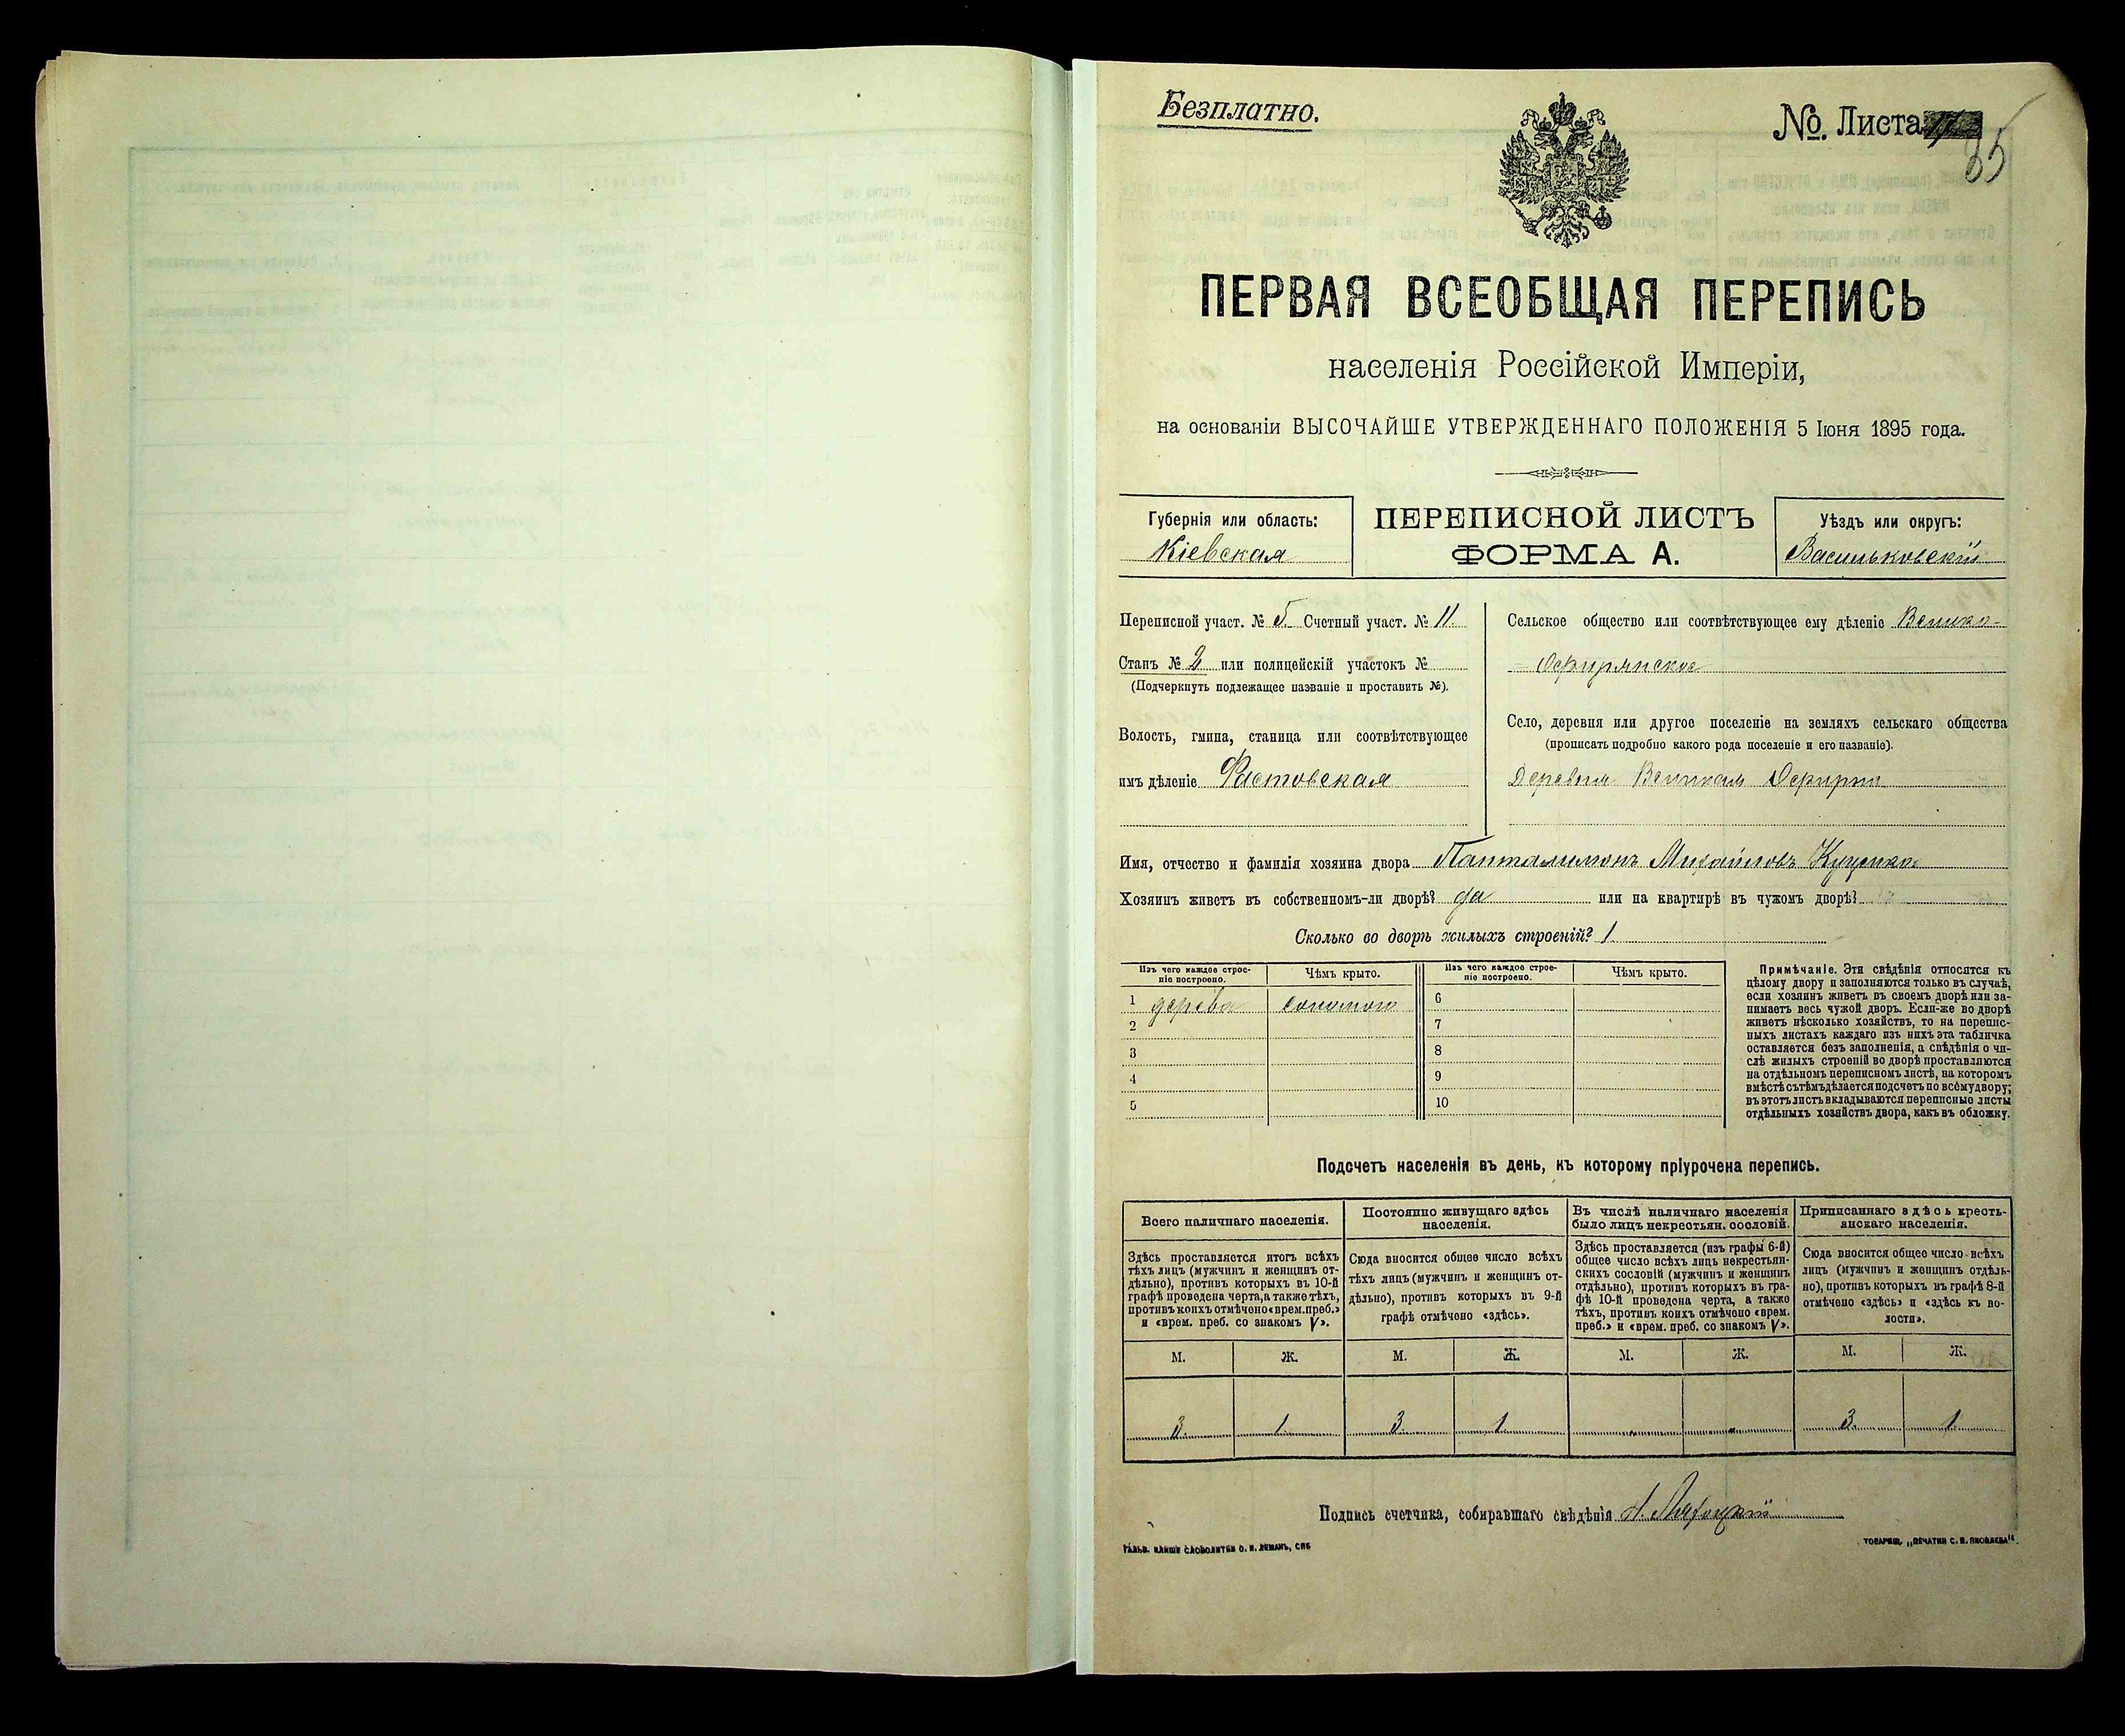 Безплатно.
№ Листа
35
ПЕРВАЯ ВСЕОБЩАЯ ПЕРЕПИСЬ
населенія Россійской Имперіи,
на основаніи ВЫСОЧАЙШЕ УТВЕРЖДЕННАГО ПОЛОЖЕНІЯ 5 Іюня 1895 года.
Губернія или область:
Кіевская
ПЕРЕПИСНОЙ ЛИСТЪ
ФОРМА А.
Уѣздъ или округъ:
Васильковскій
Переписной участ. № 5. Счетный участ. № 11
Станъ № 2 или полицейскій участокъ №
(Подчеркнуть подлежащее названіе и проставить №).
Волость, гмина, станица или соотвѣтствующее
имъ дѣленіе Фастовская
Сельское общество или соотвѣтствующее ему дѣленіе Велико-
Офирянское
Село, деревня или другое поселеніе на земляхъ сельскаго общества
(прописать подробно какого рода поселеніе и его названіе).
Деревня Великая Офирна
Имя, отчество и фамилія хозяина двора Панталимонъ Михайловъ Куценко
Хозяинъ живетъ въ собственномъ-ли дворѣ? да или на квартирѣ въ чужомъ дворѣ?
Сколько во дворѣ жилыхъ строеній? 1
Изъ чего каждое строе-
ніе построено.
Чѣмъ крыто.
Изъ чего каждое строе-
ніе построено.
Чѣмъ крыто.
1 дерева соломою 6
2 7
3 8
4 9
5 10
Примѣчаніе. Эти свѣдѣнія относятся къ
цѣлому двору и заполняются только въ случаѣ,
если хозяинъ живетъ въ своемъ дворѣ или за-
нимаетъ весь чужой дворъ. Если-же во дворѣ
живетъ нѣсколько хозяйствъ, то на перепис-
ныхъ листахъ каждаго изъ нихъ эта табличка
оставляется безъ заполненія, а свѣдѣнія о чи-
слѣ жилыхъ строеній во дворѣ проставляются
на отдѣльномъ переписномъ листѣ, на которомъ
вмѣстѣ съ тѣмъ дѣлается подсчетъ по всему двору;
въ этотъ листъ вкладываются переписные листы
отдѣльныхъ хозяйствъ двора, какъ въ обложку.
Подсчетъ населенія въ день, къ которому пріурочена перепись.
Всего наличнаго населенія.
Здѣсь проставляется итогъ всѣхъ
тѣхъ лицъ (мужчинъ и женщинъ от-
дѣльно), противъ которыхъ въ 10-й
графѣ проведена черта, а также тѣхъ,
противъ коихъ отмѣчено «врем. преб.»
и «врем. преб. со знакомъ V».
Постоянно живущаго здѣсь
населенія.
Сюда вносится общее число всѣхъ
тѣхъ лицъ (мужчинъ и женщинъ от-
дѣльно), противъ которыхъ въ 9-й
графѣ отмѣчено «здѣсь».
Въ числѣ наличнаго населенія
было лицъ некрестьян. сословій.
Здѣсь проставляется (изъ графы 6-й)
общее число всѣхъ лицъ некрестьян-
скихъ сословій (мужчинъ и женщинъ
отдѣльно), противъ которыхъ въ гра-
фѣ 10-й проведена черта, а также
тѣхъ, противъ коихъ отмѣчено «врем.
преб.» и «врем. преб. со знакомъ V».
Приписаннаго здѣсь кресть-
янскаго населенія.
Сюда вносится общее число всѣхъ
лицъ (мужчинъ и женщинъ отдѣль-
но), противъ которыхъ въ графѣ 8-й
отмѣчено «здѣсь» и «здѣсь къ во-
лости».
М. Ж. М. Ж. М. Ж. М. Ж.
3. 1. 3. 1. 3. 1.
Подпись счетчика, собиравшаго свѣдѣнія
ГАЛЬВ. КЛИШЕ СЛОВОЛИТНИ О. И. ЛЕМАНЪ, СПБ
ТОВАРИЩ. „ПЕЧАТНЯ С. П. ЯКОВЛЕВА“.